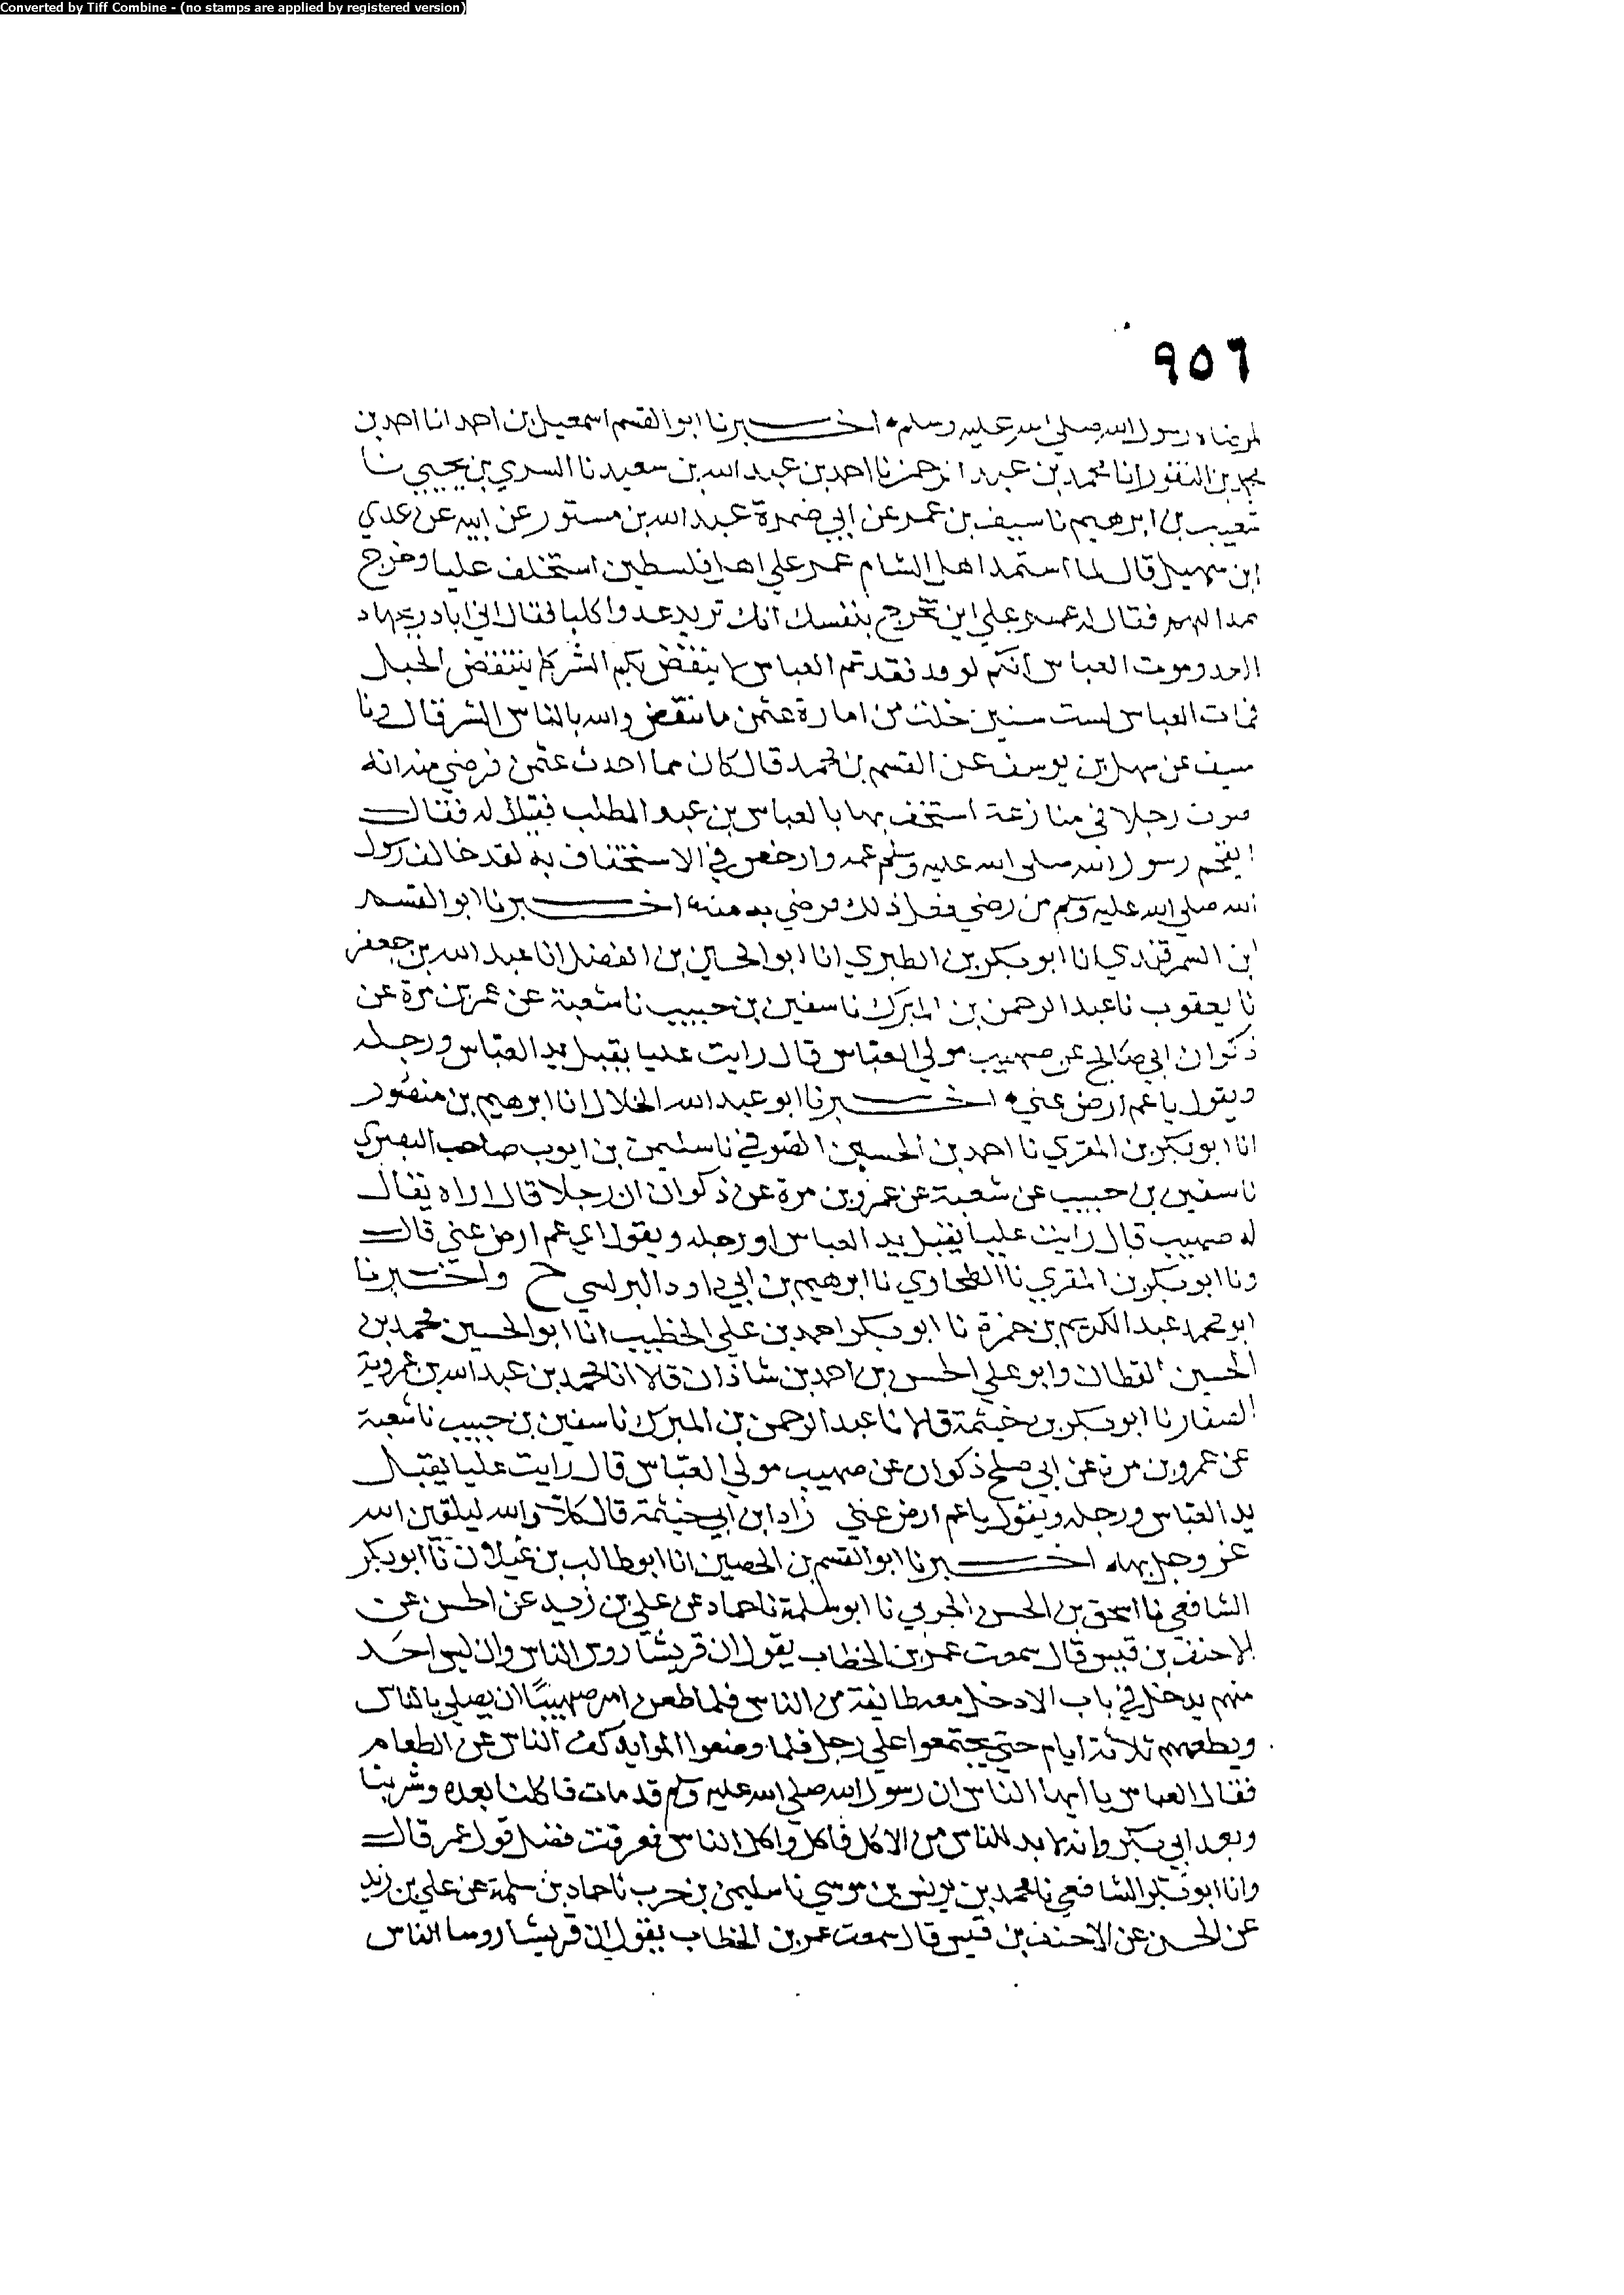 Converted by Tiff Combine - (no stamps are applied by registered version)
٩٥٦
لمرضاه رسول الله صلي الله عليه وسلم • اخبرنا ابو القسم اسمعيل بن احمد انا احمد بن
محمد بن النقور انا محمد بن عبد الرحمن نا احمد بن عبد الله بن سعيد نا السري بن يحيي نا
شعيب بن ابرهيم نا سيف بن عمر عن ابي ضمرة عبد الله بن مستور عن ابيه عن عدي
ابن سهيل قال لما استمد اهل الشام عمر علي اهل فلسطين استخلف عليا وخرج
ممدا لهم فقال له علي اين تخرج بنفسك انك تريد عدوا كلبا فقال اني ابادر بجهاد
العدو موت العباس انكم لو قد فقدتم العباس لا ينتقض بكم الشر كما ينتقض الحبل
فمات العباس لست سنين خلت من امارة عثمن ما نتقض والله بالناس الشر قال ونا
سيف عن سهل بن يوسف عن القسم بن محمد قال كان مما احدث عثمن فرضي منه انه
ضرب رجلا في منازعة استخف بها بالعباس بن عبد المطلب فقيل له فقال
ايفخم رسول الله صلي الله عليه وسلم عمه وارخص في الاستخفاف به لقد خالف رسول
الله صلي الله عليه وسلم من رضي فعل ذلك فرضي به منه • اخبرنا ابو القسم
ابن السمرقندي انا ابو بكر بن الطبري انا ابو الحسين بن الفضل انا عبد الله بن جعفر
نا يعقوب نا عبد الرحمن بن المبرك نا سفين بن حبيب نا شعبة عن عمرو بن مرة عن
ذكوان ابي صالح عن صهيب مولي العباس قال رايت عليا يقبل يد العباس ورجله
ويقول يا عم ارض عني • اخبرنا ابو عبد الله الخلال انا ابرهيم بن منصور
انا ابو بكر بن المقري نا احمد بن الحسين الصوفي نا سليمن بن ايوب صاحب البصري
نا سفين بن حبيب عن شعبة عن عمرو بن مرة عن ذكوان ان رجلا قال اراه يقال
له صهيب قال رايت عليا يقبل يد العباس او رجله ويقول اي عم ارض عني قال
ونا ابو بكر بن المقري نا الطحاوي نا ابرهيم بن ابي داود البرلسي ح واخبرنا
ابو محمد عبد الكريم بن حمزة نا ابو بكر احمد بن علي الخطيب انا ابو الحسين محمد بن
الحسين القطان وابو علي الحسن بن احمد بن شاذان قالا انا محمد بن عبد الله بن عمروية
الصفار نا ابو بكر بن خيثمة قالا نا عبد الرحمن بن المبرك نا سفين بن حبيب نا شعبة
عن عمرو بن مرة عن ابي صلح ذكوان عن صهيب مولي العباس قال رايت عليا يقبل
يد العباس ورجله ويقول يا عم ارض عني زاد ابن ابي خيثمة قال كلا والله ليلقين الله
عز وجل بها • اخبرنا ابو القسم بن الحصين انا ابو طالب بن غيلان نا ابو بكر
الشافعي نا اسحق بن الحسن الحربي نا ابو سلمة نا حماد عن علي بن زيد عن الحسن عن
الاحنف بن قيس قال سمعت عمر بن الخطاب يقول ان قريشا روس الناس وان ليس احد
منهم يدخل في باب الا دخل معه طائفة من الناس فلما طعن امر صهيبا ان يصلي بالناس
ويطعمهم ثلاثة ايام حتي يجتمعوا علي رجل فلما وضعوا الموايد كف الناس عن الطعام
فقال العباس يا ايها الناس ان رسول الله صلي الله عليه وسلم قد مات فاكلنا بعده وشربنا
وبعد ابي بكر وانه لا بد للناس من الاكل فاكل واكل الناس فعرفت فضل قول عمر قال
وانا ابو بكر الشافعي نا محمد بن يونس بن موسي نا سليمن بن حرب نا حماد بن سلمة عن علي بن زيد
عن الحسن عن الاحنف بن قيس قال سمعت عمر بن الخطاب يقول ان قريشا روسا الناس